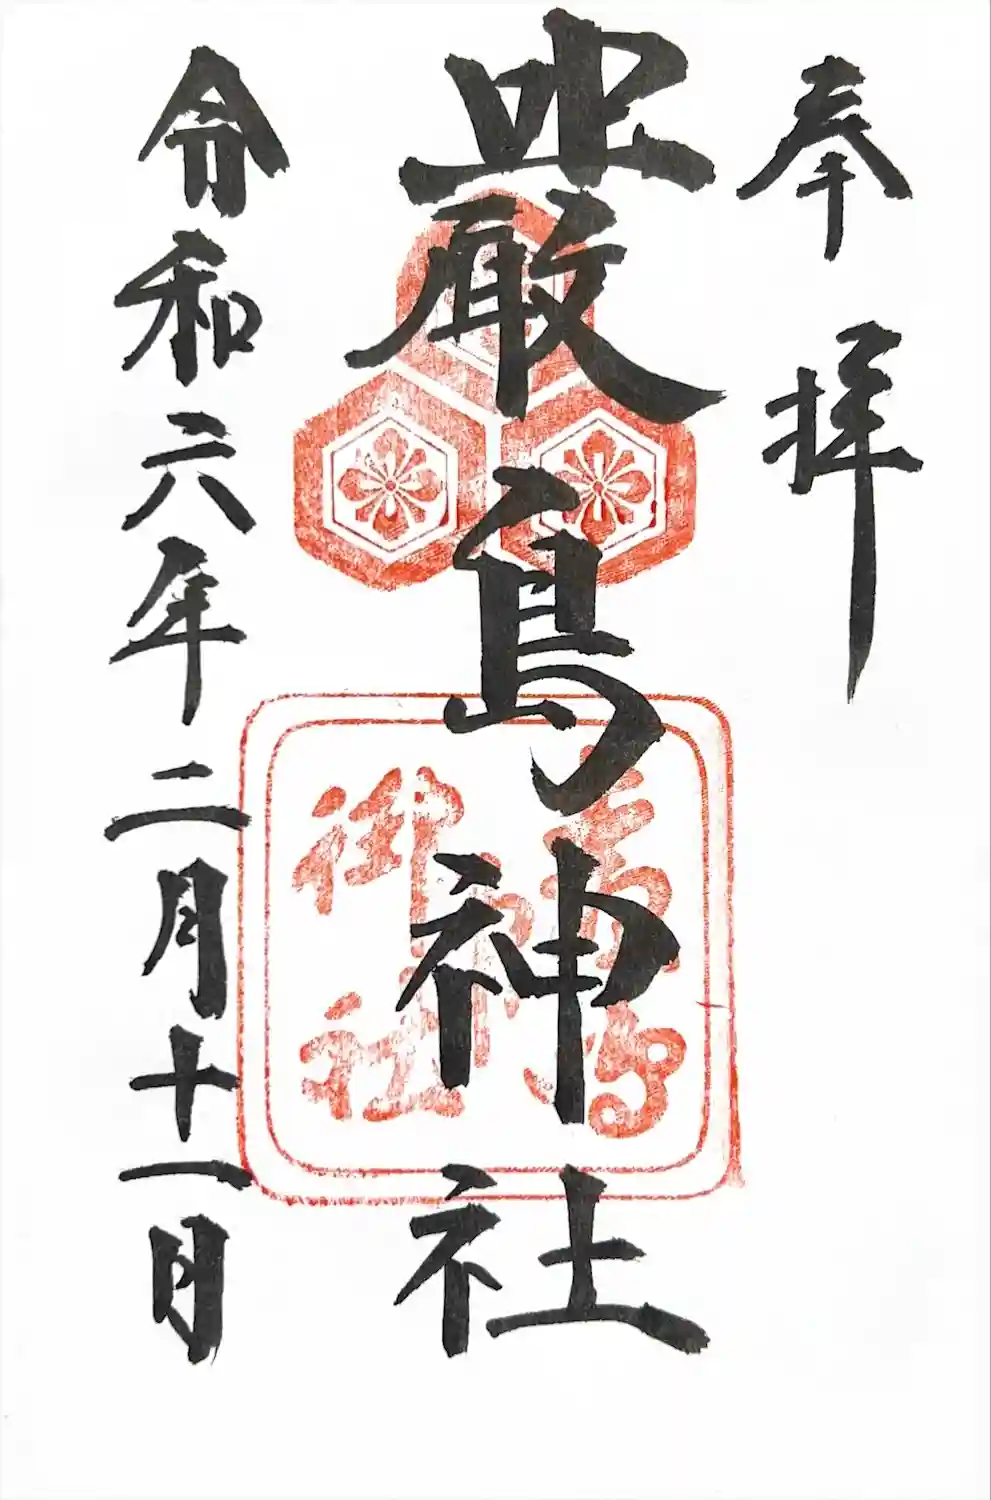 奉拝
嚴島神社
令和六年二月十一日
御社